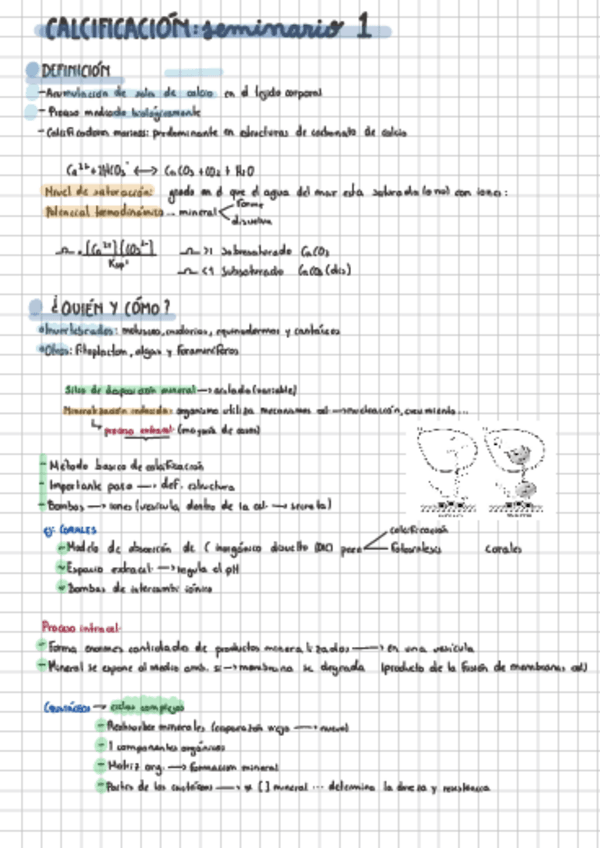 CALCIFICACIÓN: seminario 1
DEFINICIÓN
- Acumulación de sales de calcio en el tejido corporal
- Proceso mediado biológicamente
- Calcificadores marinos: predominante en estructuras de carbonato de calcio
Ca²⁺ + 2HCO₃⁻ ⟷ CaCO₃ + CO₂ + H₂O
Nivel de saturación: grado en el que el agua del mar está saturada (o no) con iones:
Potencial termodinámico... mineral < forme
disuelva
Ω = [Ca²⁺][CO₃²⁻]
Ksp
Ω >1 sobresaturado CaCO₃
Ω <1 subsaturado CaCO₃ (dis)
¿QUIÉN Y CÓMO?
Invertebrados: moluscos, cnidarios, equinodermos y crustáceos
Otros: fitoplacton, algas y foraminíferos
Sitio de deposición mineral → aislado (variable)
Mineralización inducida: organismo utiliza mecanismos cel → nucleación, crecimiento...
↳ proceso extracel. (mayoría de casos)
- Método basico de calcificación
- Importante para → def. estructura
- Bombas → iones (vesícula dentro de la cel. → secreta)
ej: CORALES
- Modelo de absorción de C inorgánico disuelto (DIC) para < calcificación
fotosíntesis
corales
- Espacio extracel. → regula el pH
- Bombas de intercambi iónico
Proceso intracel.
- Forma enormes cantidades de productos mineralizados → en una vesícula
- Mineral se expone al medio amb. si → membrana se degrada (producto de la fusión de membranas cel)
Crustáceos → ciclos complejos
- Reabsorber minerales (caparazón viejo → nuevo)
- componentes orgánicos
- Matriz org. → formacion mineral
- Partes de los crustáceos → ≠ [ ] mineral ... determina la dureza y resistencia